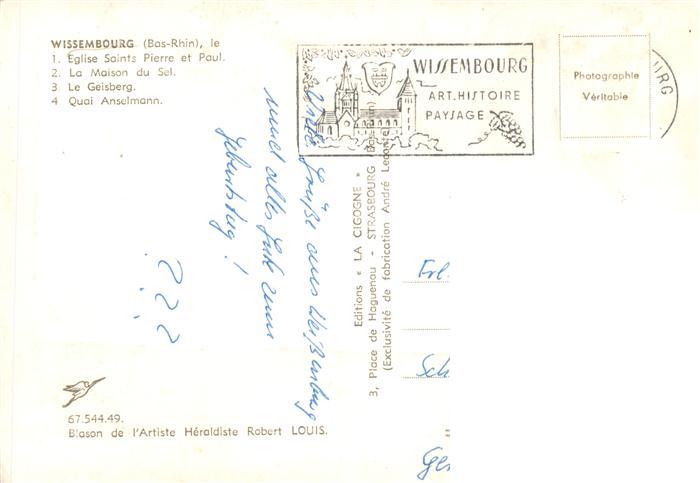 WISSEMBOURG (Bas-Rhin), le
1. Eglise Saints Pierre et Paul.
2. La Maison du Sel.
3 Le Geisberg.
4 Quai Anselmann.
WISSEMBOURG
ART.HISTOIRE
PAYSAGE
URG
Photographie
Véritable
Viele Grüße aus Weißenburg
und alles Gute zum
Geburtstag!
? ? ?
Editions « LA CIGOGNE »
3, Place de Haguenau - STRASBOURG (Bas-Rhin)
(Exclusivité de fabrication André Leconte)
Frl.
Sch
Ge
67.544.49.
Blason de l'Artiste Héraldiste Robert LOUIS.